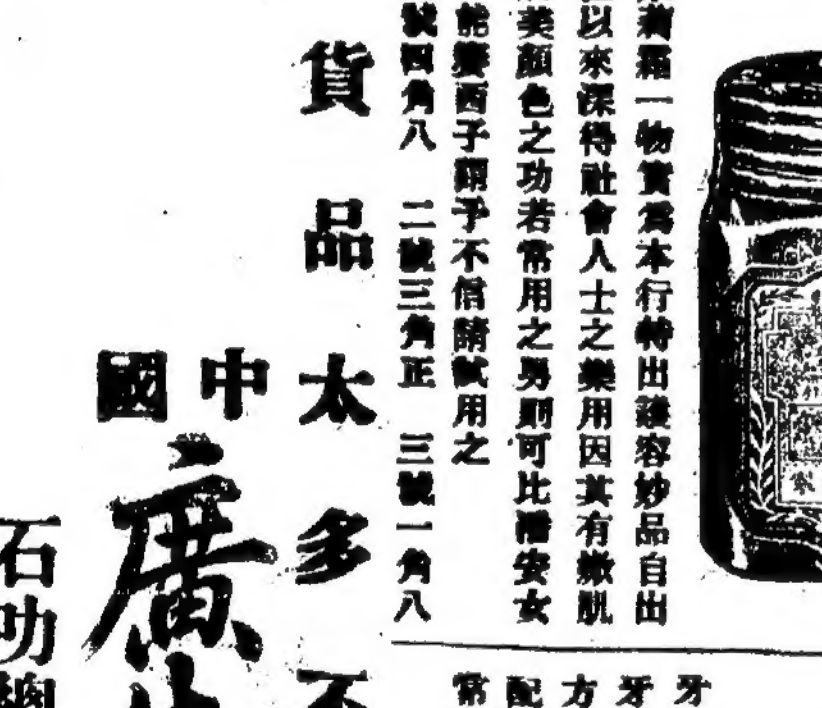 霜一物實為本行特出護容妙品自出
以來深得社會人士之樂用因其有嫩肌
美顏色之功若常用之男則可比潘安女
能賽西子謂予不信請試用之
號四角八 二號三角正 三號一角八
貨品太多不
中國
廣
石叻總
牙
牙
方
配
常